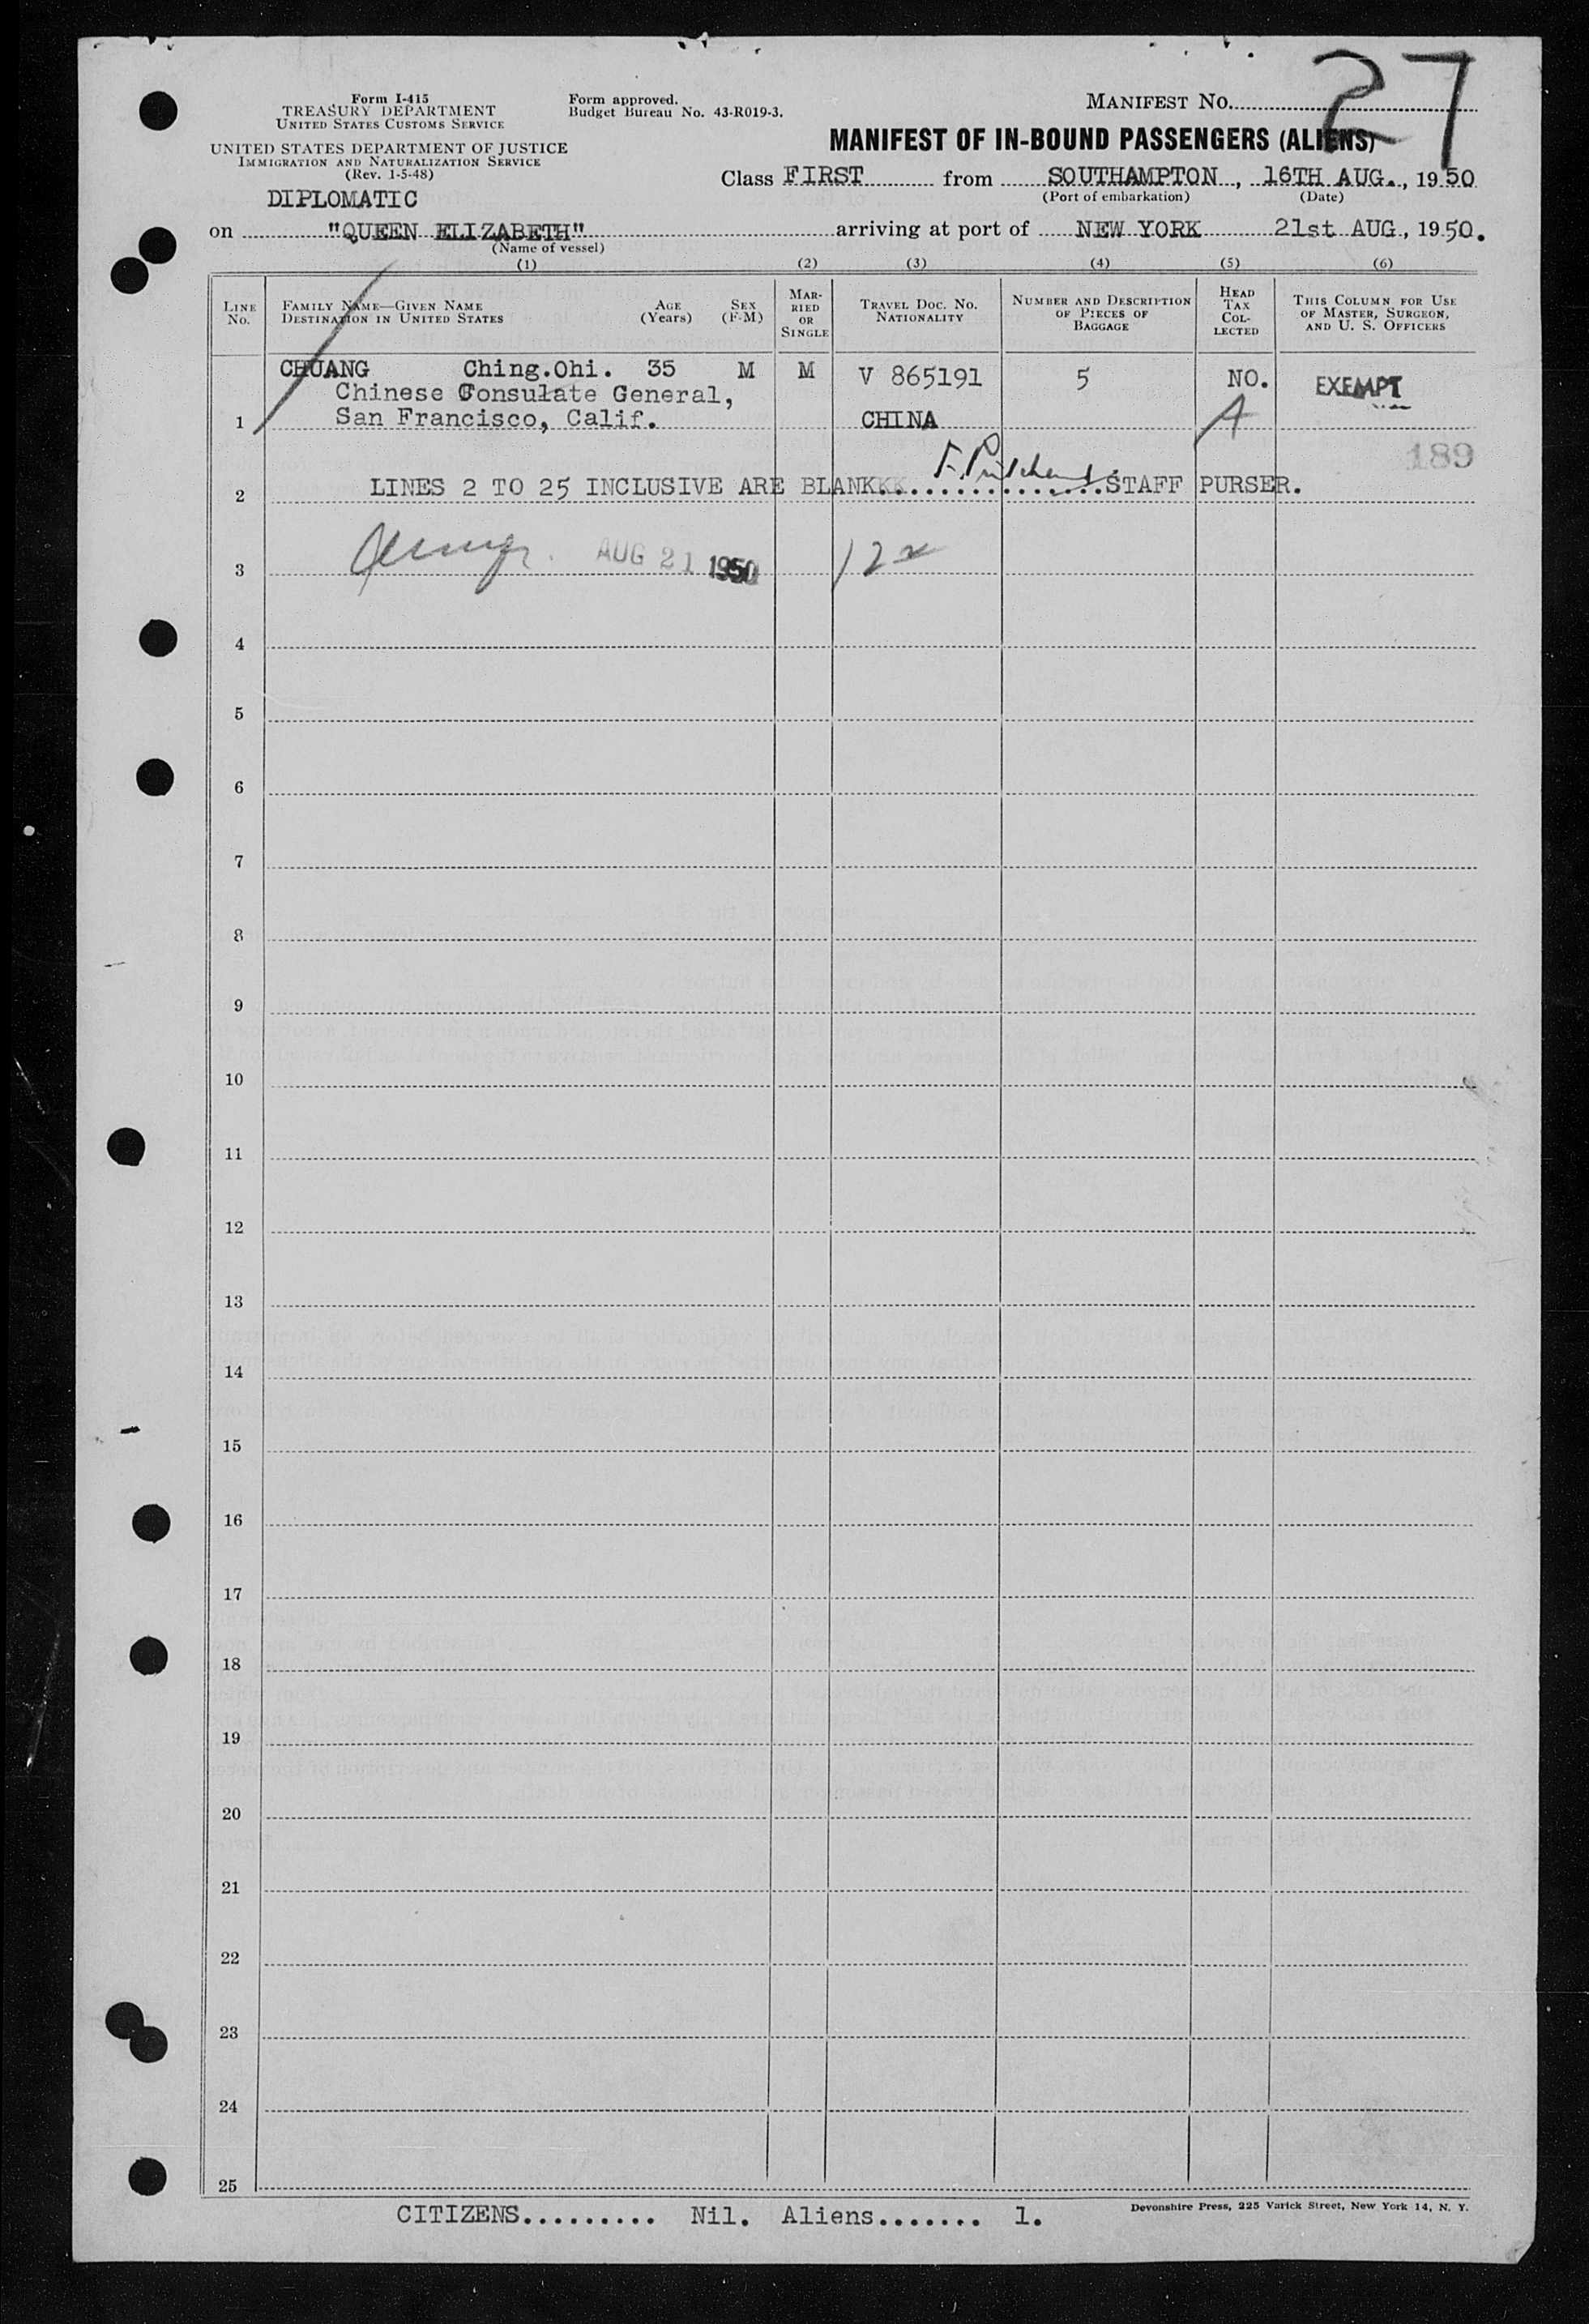 27
Form I-415
TREASURY DEPARTMENT
UNITED STATES CUSTOMS SERVICE
UNITED STATES DEPARTMENT OF JUSTICE
IMMIGRATION AND NATURALIZATION SERVICE
(Rev. 1-5-48)
Form approved.
Budget Bureau No. 43-R019-3.
MANIFEST No.
MANIFEST OF IN-BOUND PASSENGERS (ALIENS)
Class FIRST from SOUTHAMPTON, 16TH AUG., 1950
(Port of embarkation) (Date)
DIPLOMATIC
on "QUEEN ELIZABETH" arriving at port of NEW YORK 21st AUG, 1950.
(Name of vessel)
(1) (2) (3) (4) (5) (6)
LINE No.
FAMILY NAME—GIVEN NAME
DESTINATION IN UNITED STATES
AGE (Years)
SEX (F-M)
MARRIED OR SINGLE
TRAVEL DOC. NO.
NATIONALITY
NUMBER AND DESCRIPTION OF PIECES OF BAGGAGE
HEAD TAX COLLECTED
THIS COLUMN FOR USE OF MASTER, SURGEON, AND U. S. OFFICERS
CHUANG Ching.Ohi. 35 M M V 865191 5 NO. EXEMPT
Chinese Consulate General,
1 San Francisco, Calif. CHINA A
189
2 LINES 2 TO 25 INCLUSIVE ARE BLANKKK. F. Pritchard STAFF PURSER.
3 AUG 21 1950
4
5
6
7
8
9
10
11
12
13
14
15
16
17
18
19
20
21
22
23
24
25
CITIZENS......... Nil. Aliens....... 1.
Devonshire Press, 225 Varick Street, New York 14, N. Y.